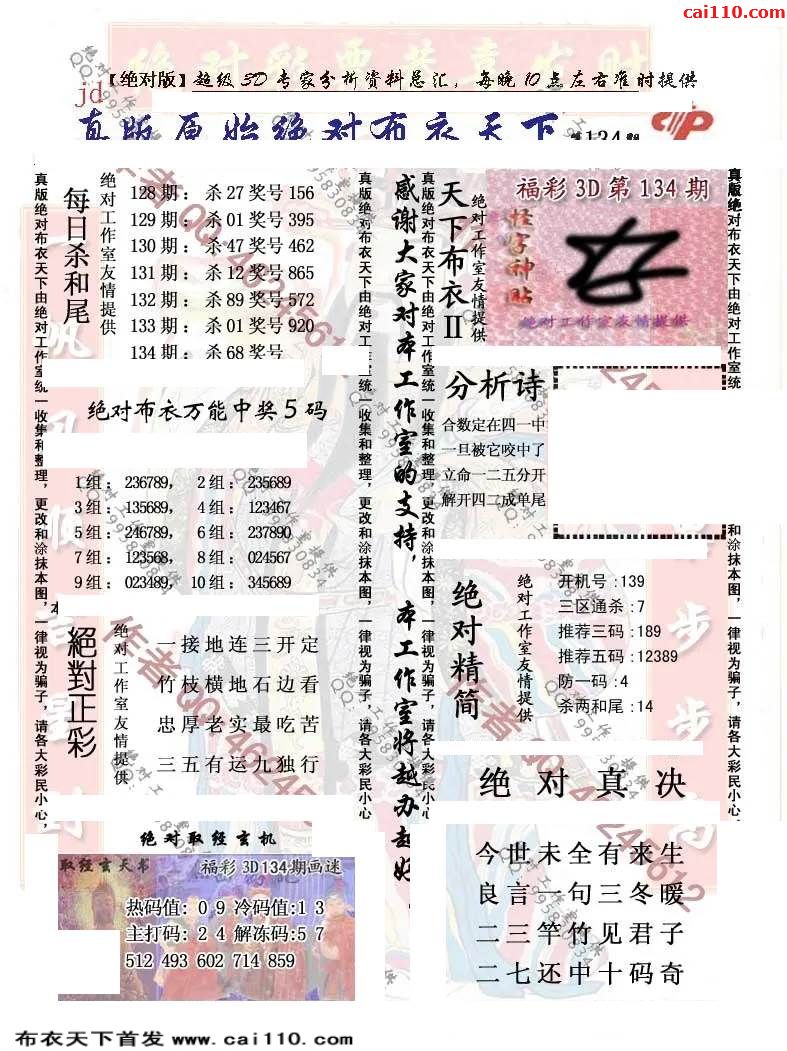 cai110.com
【绝对版】超级3D专家分析资料总汇，每晚10点左右准时提供
jd
真版原始绝对布衣天下
第134期
每日杀和尾
绝对工作室友情提供
128期：杀27奖号156
129期：杀01奖号395
130期：杀47奖号462
131期：杀12奖号865
132期：杀89奖号572
133期：杀01奖号920
134期：杀68奖号
绝对布衣万能中奖5码
1组：236789，2组：235689
3组：135689，4组：123467
5组：246789，6组：237890
7组：123568，8组：024567
9组：023489，10组：345689
絕對正彩
绝对工作室友情提供
一接地连三开定
竹枝横地石边看
忠厚老实最吃苦
三五有运九独行
绝对取经玄机
取经玄天书
福彩3D134期画迷
热码值：09冷码值:13
主打码：24解冻码:57
512 493 602 714 859
真版绝对布衣天下由绝对工作室统一收集和整理，更改和涂抹本图，一律视为骗子，请各大彩民小心，
感谢大家对本工作室的支持，本工作室将越办越好．
真版绝对布衣天下由绝对工作室统一收集和整理，更改和涂抹本图，一律视为骗子，请各大彩民小心
天下布衣II
绝对工作室友情提供
福彩3D第134期
怪字神贴
绝对工作室友情提供
分析诗
合数定在四一中
一旦被它咬中了
立命一二五分开
解开四二成单尾
绝对精简
绝对工作室友情提供
开机号:139
三区通杀:7
推荐三码:189
推荐五码:12389
防一码:4
杀两和尾:14
绝对真决
今世未全有来生
良言一句三冬暖
二三竿竹见君子
二七还中十码奇
真版绝对布衣天下由绝对工作室统
和涂抹本图，一律视为骗子，请各大彩民小心，
作者QQ:462454612
布衣天下首发 www.cai110.com